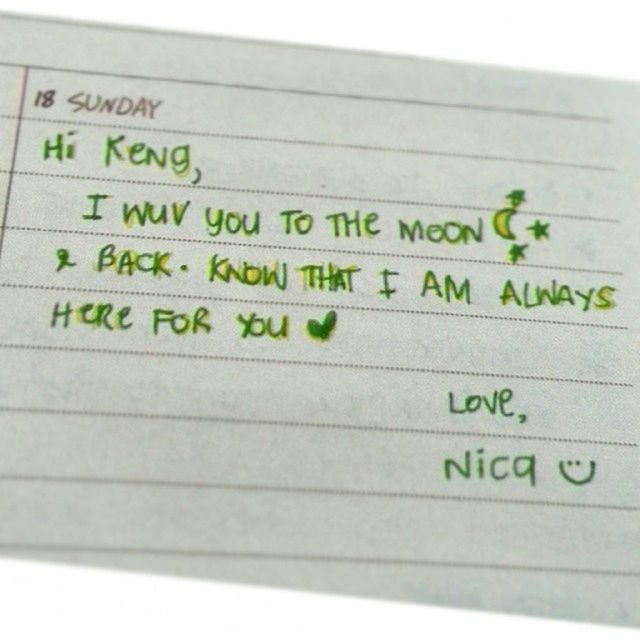 18 SUNDAY
Hi Keng,
I WUV YOU TO THE MOON
& BACK. KNOW THAT I AM ALWAYS
HERE FOR YOU
LOVE,
Nica